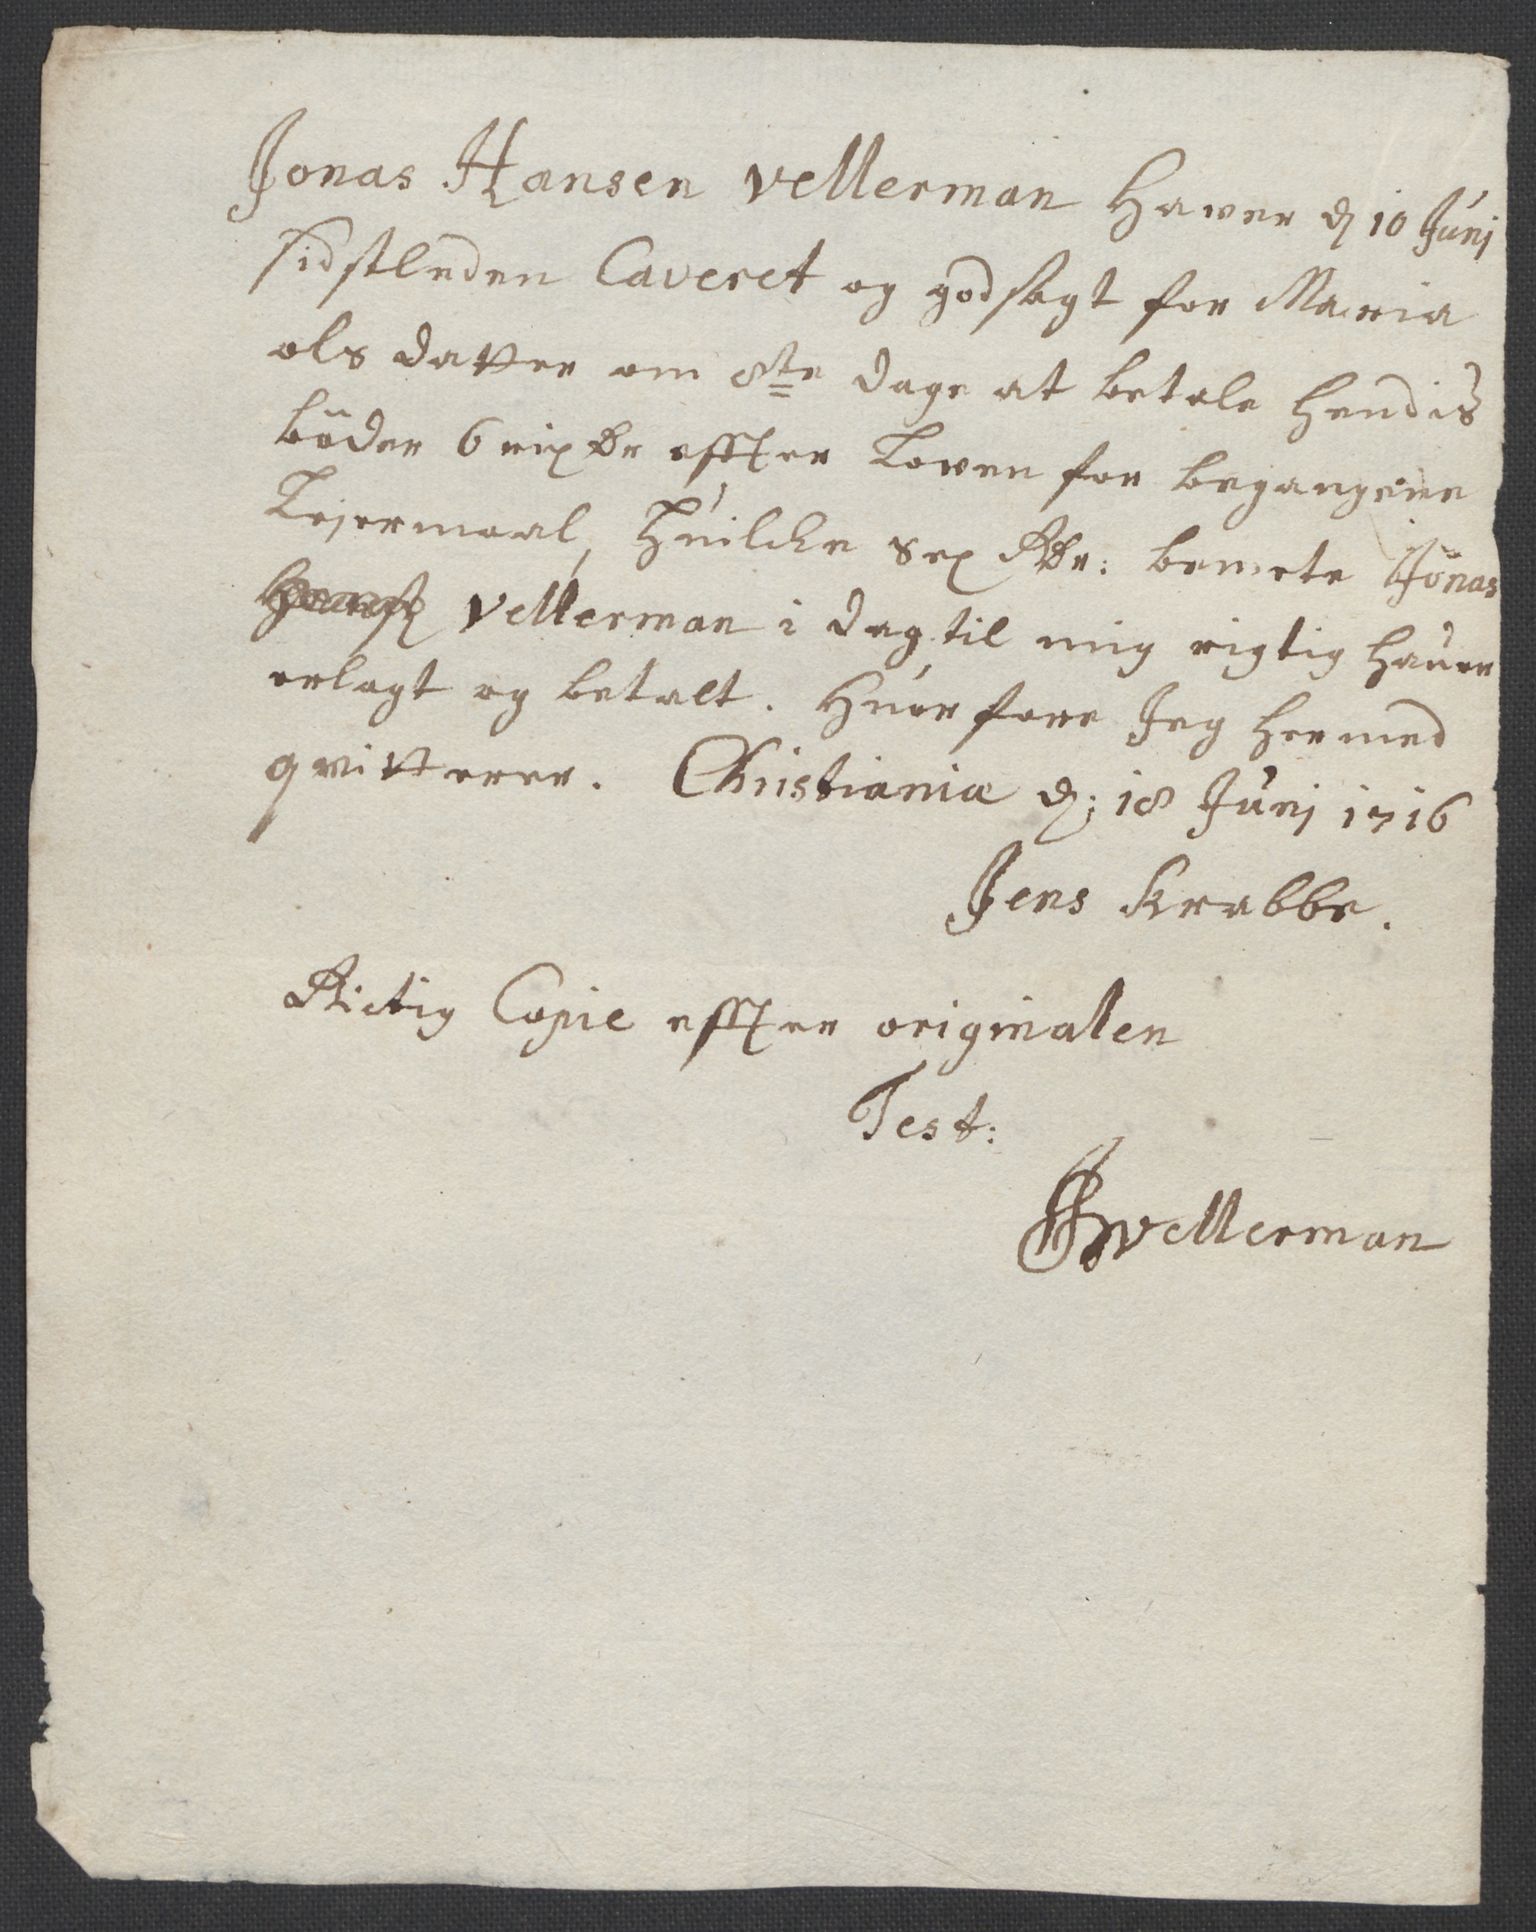 Jonas Hansen Vellerman Haver d 10 Junj
sidstleden Caveret og godsagt for Maria
ols datter om 8te dage at betale hendis
böder 6 rixdr effter Loven for begangene
Lejermaal, Huilcke sex Rdr: bemete Jonas
Vellerman i dag til mig rigtig hauer
erlagt og betalt. Huorfore Jeg hermed
qvitterer. Christiania d: 18 Junj 1716
Jens Krabbe.
Rictig Copie effter originalen
Test:
Vellerman